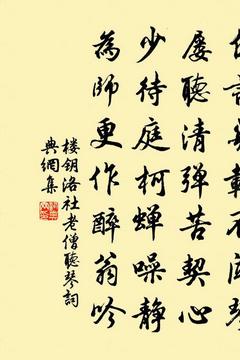 屢聽清彈苦契心
少待庭柯蟬噪静
為師更作醉翁吟
楼钥洛社老僧聽琴詞
典網集